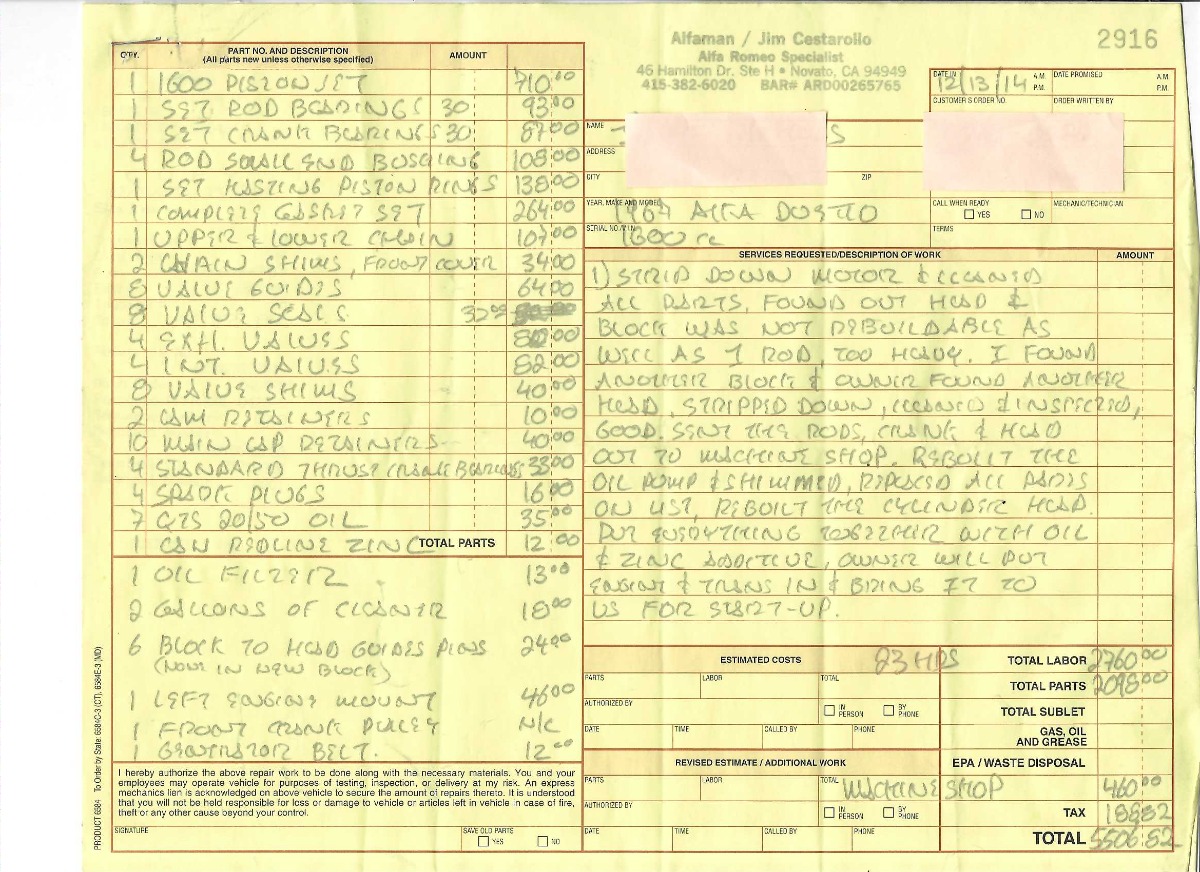 Alfaman / Jim Cestarollo
Alfa Romeo Specialist
46 Hamilton Dr. Ste H • Novato, CA 94949
415-382-6020 BAR# ARD00265765
2916
QTY. PART NO. AND DESCRIPTION AMOUNT
(All parts new unless otherwise specified)
1 1600 PISTON SET 710.00
1 SET ROD BEARINGS 30 93.00
1 SET CRANK BEARINGS 30 87.00
4 ROD SMALL END BUSHING 108.00
1 SET HASTING PISTON RINGS 138.00
1 COMPLETE GASKET SET 264.00
1 UPPER & LOWER CHAIN 107.00
2 CHAIN SHIMS, FRONT COVER 34.00
8 VALVE GUIDES 64.00
8 VALVE SEALS 32.00
4 EXH. VALVES
4 INT. VALVES 82.00
8 VALVE SHIMS 40.00
2 CAM RETAINERS 10.00
10 MAIN CAP RETAINERS 40.00
4 STANDARD THRUST CRANK BEARINGS 33.00
4 SPARK PLUGS 16.00
7 QTS 20/50 OIL 35.00
1 CAN REDLINE ZINC TOTAL PARTS 12.00
1 OIL FILTER 13.00
2 GALLONS OF CLEANER 18.00
6 BLOCK TO HEAD GUIDES PINS 24.00
(NONE IN NEW BLOCK)
1 LEFT ENGINE MOUNT 46.00
1 FRONT CRANK PULLEY N/C
1 GENERATOR BELT. 12.00
I hereby authorize the above repair work to be done along with the necessary materials. You and your
employees may operate vehicle for purposes of testing, inspection, or delivery at my risk. An express
mechanics lien is acknowledged on above vehicle to secure the amount of repairs thereto. It is understood
that you will not be held responsible for loss or damage to vehicle or articles left in vehicle in case of fire,
theft or any other cause beyond your control.
SIGNATURE SAVE OLD PARTS
YES NO
PRODUCT 6584 To Order by State: 6584C-3 (CT), 6584E-3 (MD)
DATE IN 12/13/14 A.M. P.M. DATE PROMISED A.M. P.M.
CUSTOMER'S ORDER NO. ORDER WRITTEN BY
NAME S
ADDRESS
CITY ZIP
YEAR, MAKE AND MODEL 1967 ALFA DUETTO CALL WHEN READY YES NO MECHANIC/TECHNICIAN
SERIAL NO./V.I.N. 1600 cc TERMS
SERVICES REQUESTED/DESCRIPTION OF WORK AMOUNT
1) STRIP DOWN MOTOR & CLEANED
ALL PARTS, FOUND OUT HEAD &
BLOCK WAS NOT REBUILDABLE AS
WELL AS 1 ROD, TOO HEAVY. I FOUND
ANOTHER BLOCK & OWNER FOUND ANOTHER
HEAD, STRIPPED DOWN, CLEANED & INSPECTED,
GOOD. SENT THE RODS, CRANK & HEAD
OUT TO MACHINE SHOP. REBUILT THE
OIL PUMP & SHIMMED, REPLACED ALL PARTS
ON LIST, REBUILT THE CYLINDER HEAD.
PUT EVERYTHING TOGETHER WITH OIL
& ZINC ADDITIVE, OWNER WILL PUT
ENGINE & TRANS IN & BRING IT TO
US FOR START-UP.
ESTIMATED COSTS 23 HRS TOTAL LABOR 2760.00
PARTS LABOR TOTAL TOTAL PARTS 2098.00
AUTHORIZED BY IN PERSON BY PHONE TOTAL SUBLET
DATE TIME CALLED BY PHONE GAS, OIL AND GREASE
REVISED ESTIMATE / ADDITIONAL WORK EPA / WASTE DISPOSAL
PARTS LABOR TOTAL MACHINE SHOP 460.00
AUTHORIZED BY IN PERSON BY PHONE TAX 188.82
DATE TIME CALLED BY PHONE TOTAL 5506.82